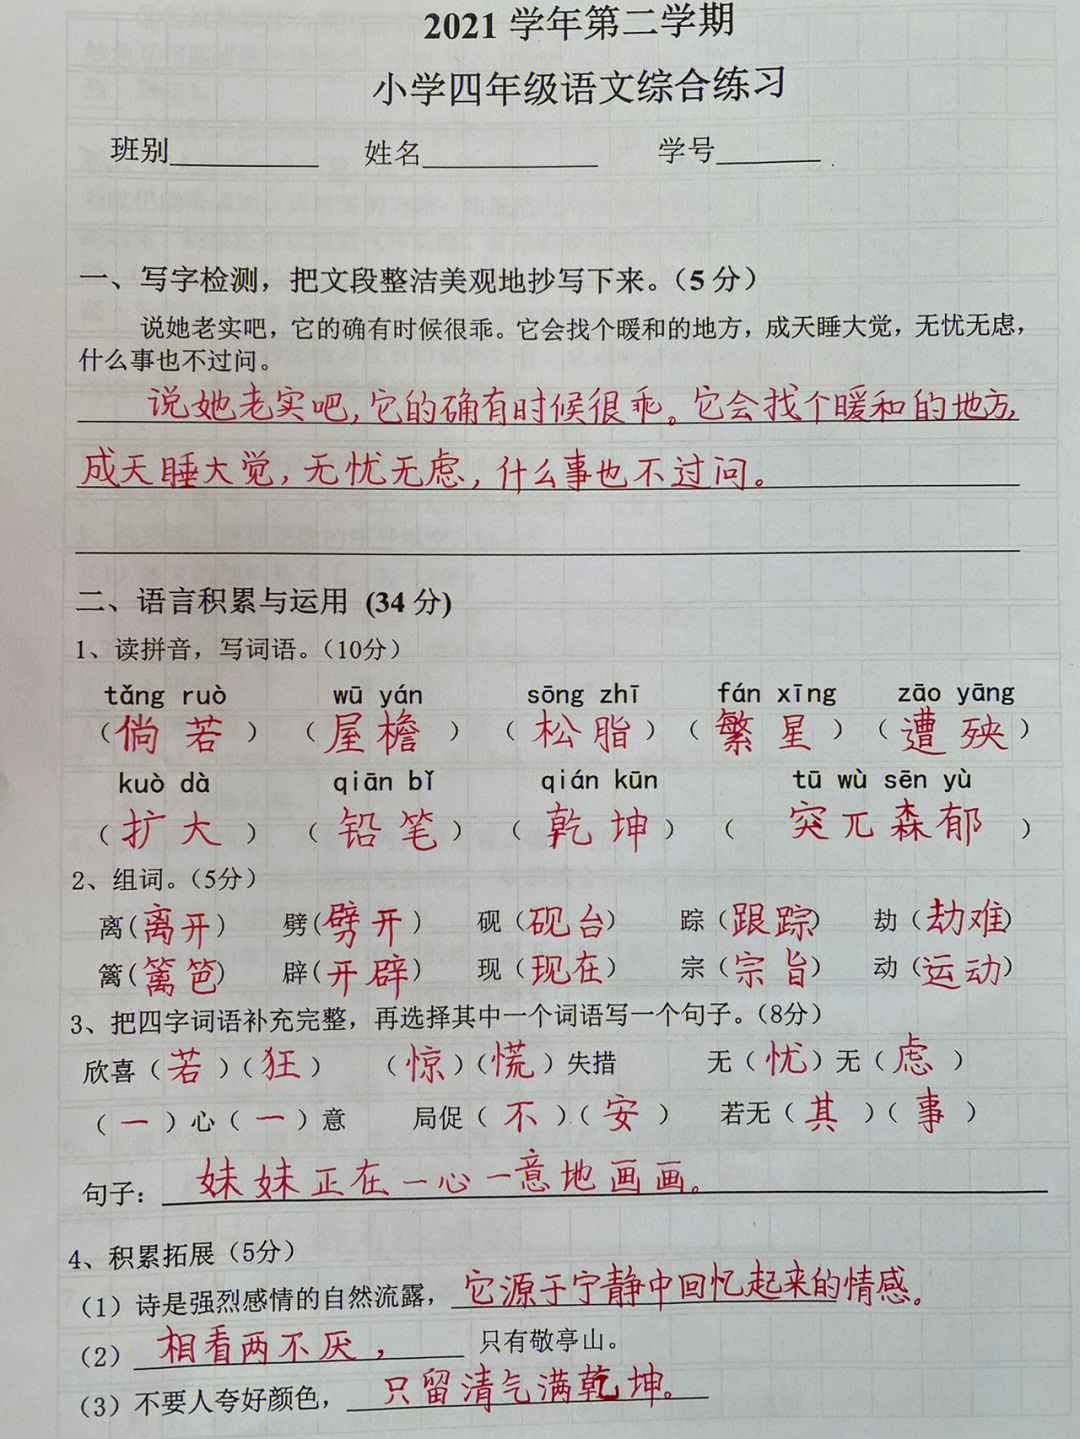 2021 学年第二学期
小学四年级语文综合练习
班别 姓名 学号
一、写字检测，把文段整洁美观地抄写下来。（5 分）
说她老实吧，它的确有时候很乖。它会找个暖和的地方，成天睡大觉，无忧无虑，
什么事也不过问。
说她老实吧,它的确有时候很乖。它会找个暖和的地方,
成天睡大觉,无忧无虑,什么事也不过问。
二、语言积累与运用 (34 分)
1、读拼音，写词语。（10分）
tǎng ruò wū yán sōng zhī fán xīng zāo yāng
（倘若）（屋檐）（松脂）（繁星）（遭殃）
kuò dà qiān bǐ qián kūn tū wù sēn yù
（扩大）（铅笔）（乾坤）（突兀森郁）
2、组词。（5分）
离(离开) 劈(劈开) 砚（砚台） 踪（跟踪） 劫（劫难）
篱(篱笆) 辟(开辟) 现（现在） 宗（宗旨） 动（运动）
3、把四字词语补充完整，再选择其中一个词语写一个句子。（8分）
欣喜（若）（狂） （惊）（慌）失措 无（忧）无（虑）
（一）心（一）意 局促（不）（安） 若无（其）（事）
句子：妹妹正在一心一意地画画。
4、积累拓展（5分）
（1）诗是强烈感情的自然流露，它源于宁静中回忆起来的情感。
（2）相看两不厌，只有敬亭山。
（3）不要人夸好颜色，只留清气满乾坤。